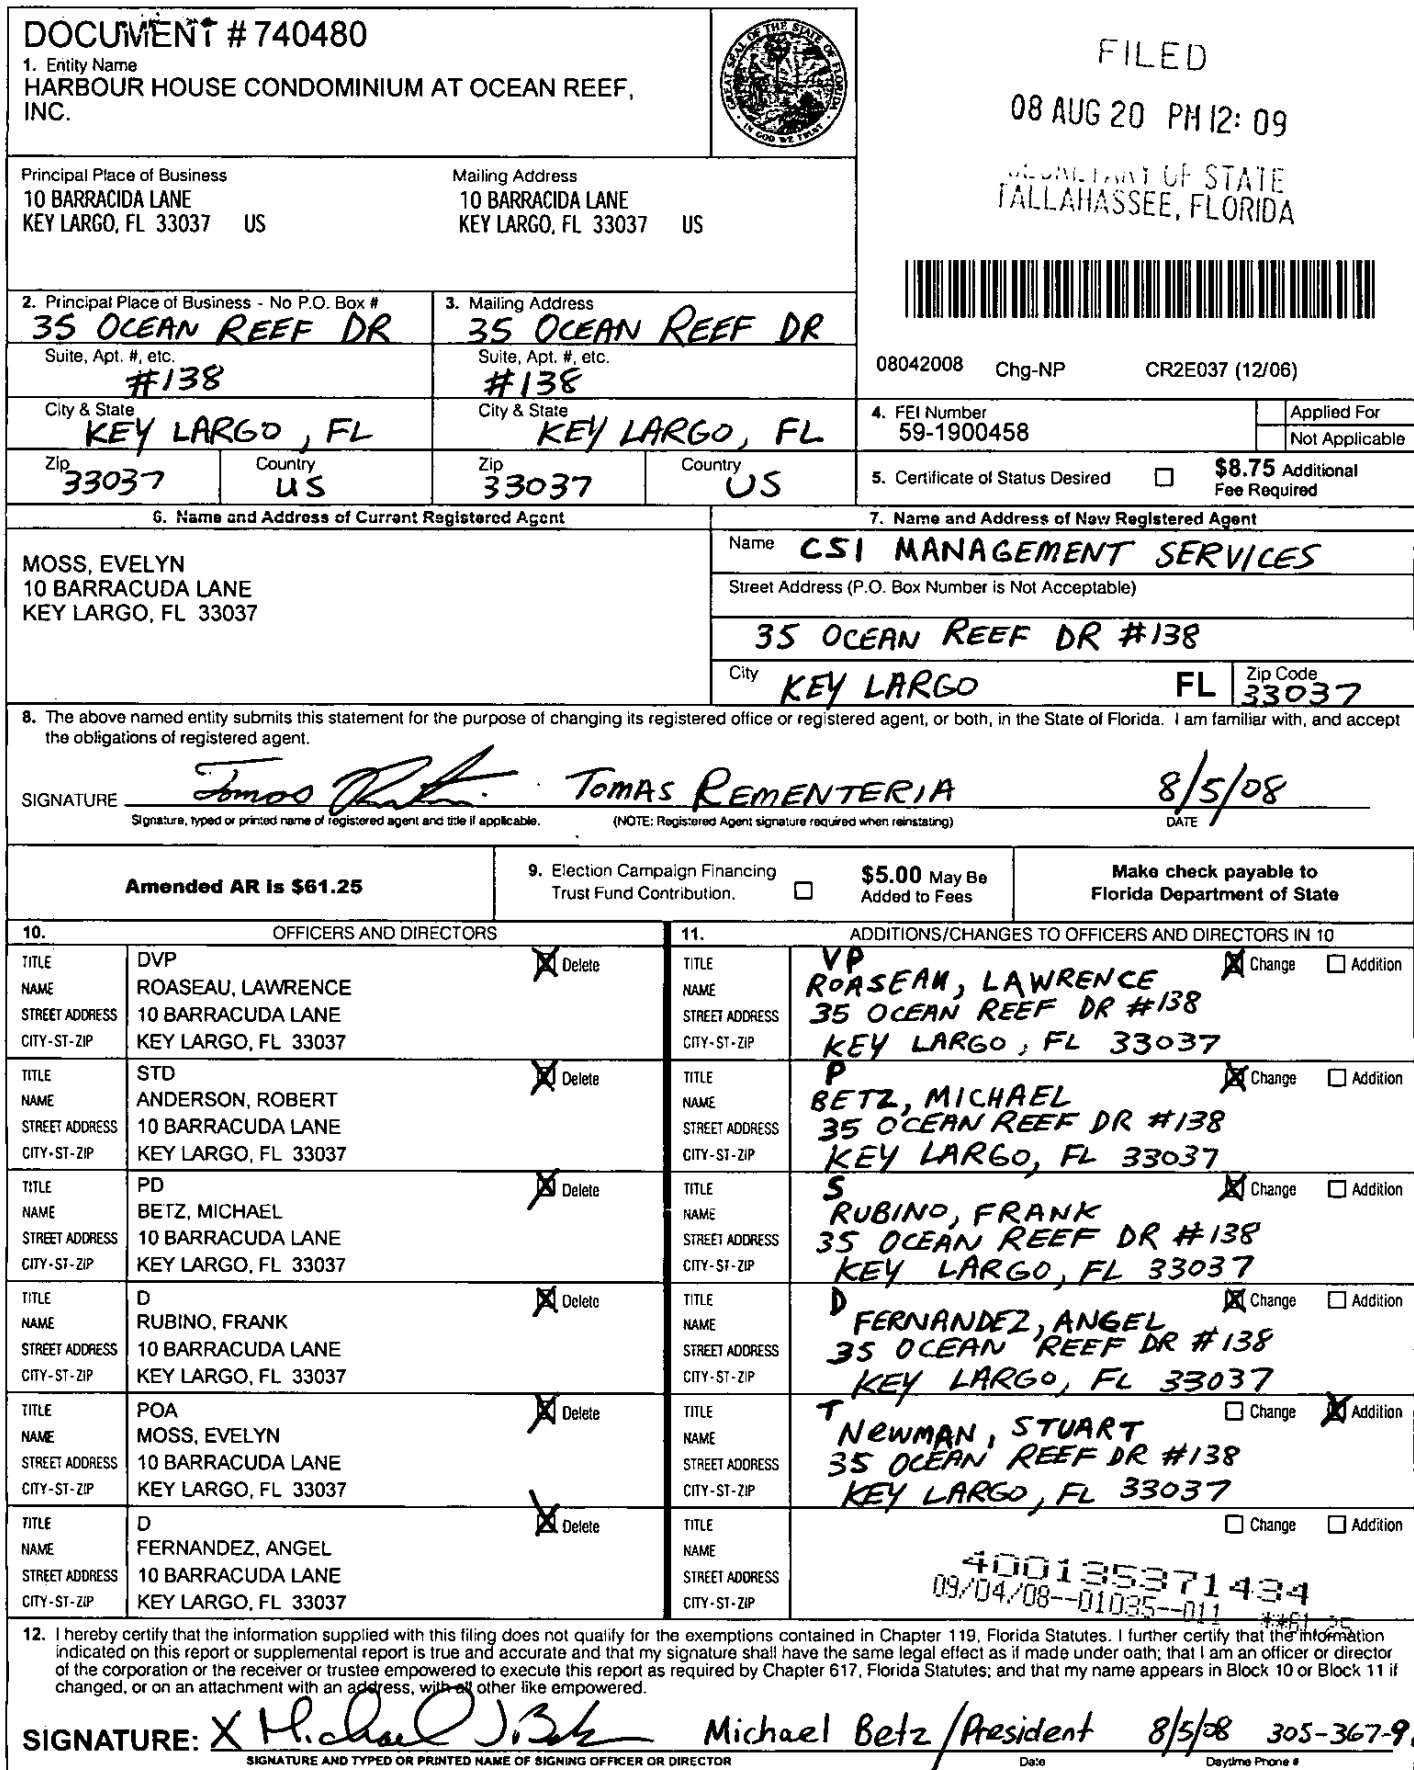 DOCUMENT # 740480
1. Entity Name
HARBOUR HOUSE CONDOMINIUM AT OCEAN REEF,
INC.
GREAT SEAL OF THE STATE OF FLORIDA
IN GOD WE TRUST
FILED
08 AUG 20 PM 12: 09
OF STATE
TALLAHASSEE, FLORIDA
Principal Place of Business
10 BARRACIDA LANE
KEY LARGO, FL 33037 US
Mailing Address
10 BARRACIDA LANE
KEY LARGO, FL 33037 US
2. Principal Place of Business - No P.O. Box #
35 OCEAN REEF DR
Suite, Apt. #, etc.
#138
City & State
KEY LARGO, FL
Zip
33037
Country
US
3. Mailing Address
35 OCEAN REEF DR
Suite, Apt. #, etc.
#138
City & State
KEY LARGO, FL
Zip
33037
Country
US
08042008 Chg-NP CR2E037 (12/06)
4. FEI Number
59-1900458
Applied For
Not Applicable
5. Certificate of Status Desired
$8.75 Additional
Fee Required
6. Name and Address of Current Registered Agent
MOSS, EVELYN
10 BARRACUDA LANE
KEY LARGO, FL 33037
7. Name and Address of New Registered Agent
Name CSI MANAGEMENT SERVICES
Street Address (P.O. Box Number is Not Acceptable)
35 OCEAN REEF DR #138
City KEY LARGO FL Zip Code 33037
8. The above named entity submits this statement for the purpose of changing its registered office or registered agent, or both, in the State of Florida. I am familiar with, and accept
the obligations of registered agent.
SIGNATURE Tomas Rementeria TOMAS REMENTERIA 8/5/08
Signature, typed or printed name of registered agent and title if applicable. (NOTE: Registered Agent signature required when reinstating) DATE
Amended AR is $61.25
9. Election Campaign Financing
Trust Fund Contribution.
$5.00 May Be
Added to Fees
Make check payable to
Florida Department of State
10. OFFICERS AND DIRECTORS
TITLE DVP X Delete
NAME ROASEAU, LAWRENCE
STREET ADDRESS 10 BARRACUDA LANE
CITY-ST-ZIP KEY LARGO, FL 33037
TITLE STD X Delete
NAME ANDERSON, ROBERT
STREET ADDRESS 10 BARRACUDA LANE
CITY-ST-ZIP KEY LARGO, FL 33037
TITLE PD X Delete
NAME BETZ, MICHAEL
STREET ADDRESS 10 BARRACUDA LANE
CITY-ST-ZIP KEY LARGO, FL 33037
TITLE D X Delete
NAME RUBINO, FRANK
STREET ADDRESS 10 BARRACUDA LANE
CITY-ST-ZIP KEY LARGO, FL 33037
TITLE POA X Delete
NAME MOSS, EVELYN
STREET ADDRESS 10 BARRACUDA LANE
CITY-ST-ZIP KEY LARGO, FL 33037
TITLE D X Delete
NAME FERNANDEZ, ANGEL
STREET ADDRESS 10 BARRACUDA LANE
CITY-ST-ZIP KEY LARGO, FL 33037
11. ADDITIONS/CHANGES TO OFFICERS AND DIRECTORS IN 10
TITLE VP X Change Addition
NAME ROASEAU, LAWRENCE
STREET ADDRESS 35 OCEAN REEF DR #138
CITY-ST-ZIP KEY LARGO, FL 33037
TITLE P X Change Addition
NAME BETZ, MICHAEL
STREET ADDRESS 35 OCEAN REEF DR #138
CITY-ST-ZIP KEY LARGO, FL 33037
TITLE S X Change Addition
NAME RUBINO, FRANK
STREET ADDRESS 35 OCEAN REEF DR #138
CITY-ST-ZIP KEY LARGO, FL 33037
TITLE D X Change Addition
NAME FERNANDEZ, ANGEL
STREET ADDRESS 35 OCEAN REEF DR #138
CITY-ST-ZIP KEY LARGO, FL 33037
TITLE T Change X Addition
NAME NEWMAN, STUART
STREET ADDRESS 35 OCEAN REEF DR #138
CITY-ST-ZIP KEY LARGO, FL 33037
TITLE Change Addition
NAME
STREET ADDRESS 400135371434
CITY-ST-ZIP 09/04/08--01035--011 **61.25
12. I hereby certify that the information supplied with this filing does not qualify for the exemptions contained in Chapter 119, Florida Statutes. I further certify that the information
indicated on this report or supplemental report is true and accurate and that my signature shall have the same legal effect as if made under oath; that I am an officer or director
of the corporation or the receiver or trustee empowered to execute this report as required by Chapter 617, Florida Statutes; and that my name appears in Block 10 or Block 11 if
changed, or on an attachment with an address, with all other like empowered.
SIGNATURE: X Michael J. Betz Michael Betz / President 8/5/08 305-367-9
SIGNATURE AND TYPED OR PRINTED NAME OF SIGNING OFFICER OR DIRECTOR Date Daytime Phone #